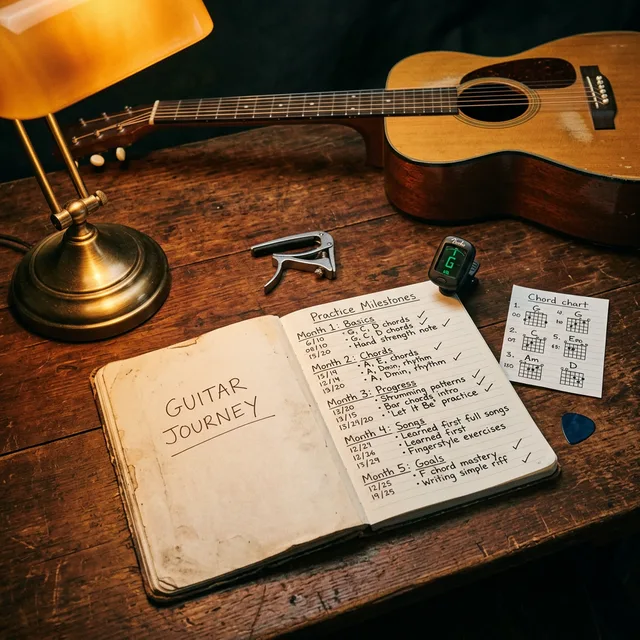 GUITAR
JOURNEY
Practice Milestones
Month 1: Basics
6/10 • G, C, D chords ✓
08/10 • G, C, D chords ✓
15/20 • Hand strength note ✓
Month 2: Chords
15/19 • A, E, chords ✓
12/19 • A, Dmin, rhythm
15/20 • A, Dmin, rhythm ✓
Month 3: Progress
13/20 • Strumming patterns ✓
13/15 • Bar chords intro ✓
15/29/20 • 'Let it Be' practice ✓
Month 4: Songs
12/27 • Learned first full songs
12/26 • Learned first
13/29 • Fingerstyle exercises ✓
Month 5: Goals
12/25 • F chord mastery ✓
19/25 • Writing simple riff ✓
G
Chord chart
1. G 4. G
2. C 5. Em
3. Am D